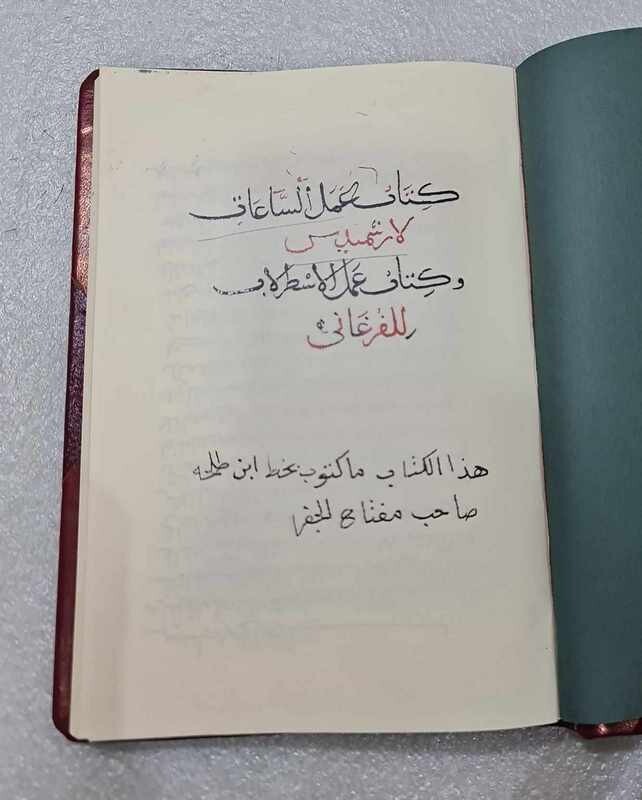 كِتَابُ عَمَلِ السَّاعَاتِ
لارشميدس
وكِتابُ عَمَل الاسْطرلاب
للفَرغَانى
هذا الكتاب ماكتوب بخط ابن طلحه
صاحب مفتاح الجفر